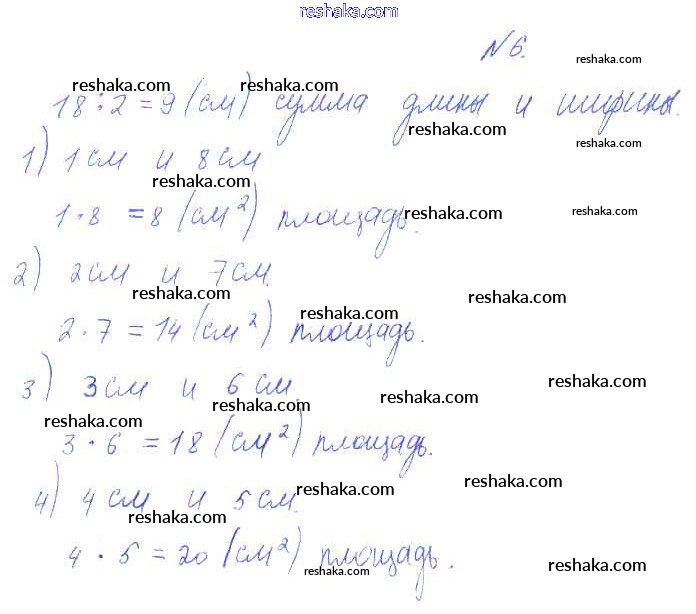 reshaka.com
№6. reshaka.com
reshaka.com reshaka.com
18:2=9 (см) сумма длины и ширины.
reshaka.com reshaka.com
1) 1см и 8см
reshaka.com
1·8 =8 (см²) площадь.
reshaka.com reshaka.com
2) 2см и 7см.
reshaka.com reshaka.com
reshaka.com
2·7=14 (см²) площадь.
3) 3см и 6см
reshaka.com reshaka.com reshaka.com
reshaka.com
3·6=18 (см²) площадь.
4) 4см и 5см.
reshaka.com reshaka.com
reshaka.com
4·5=20 (см²) площадь.
reshaka.com reshaka.com